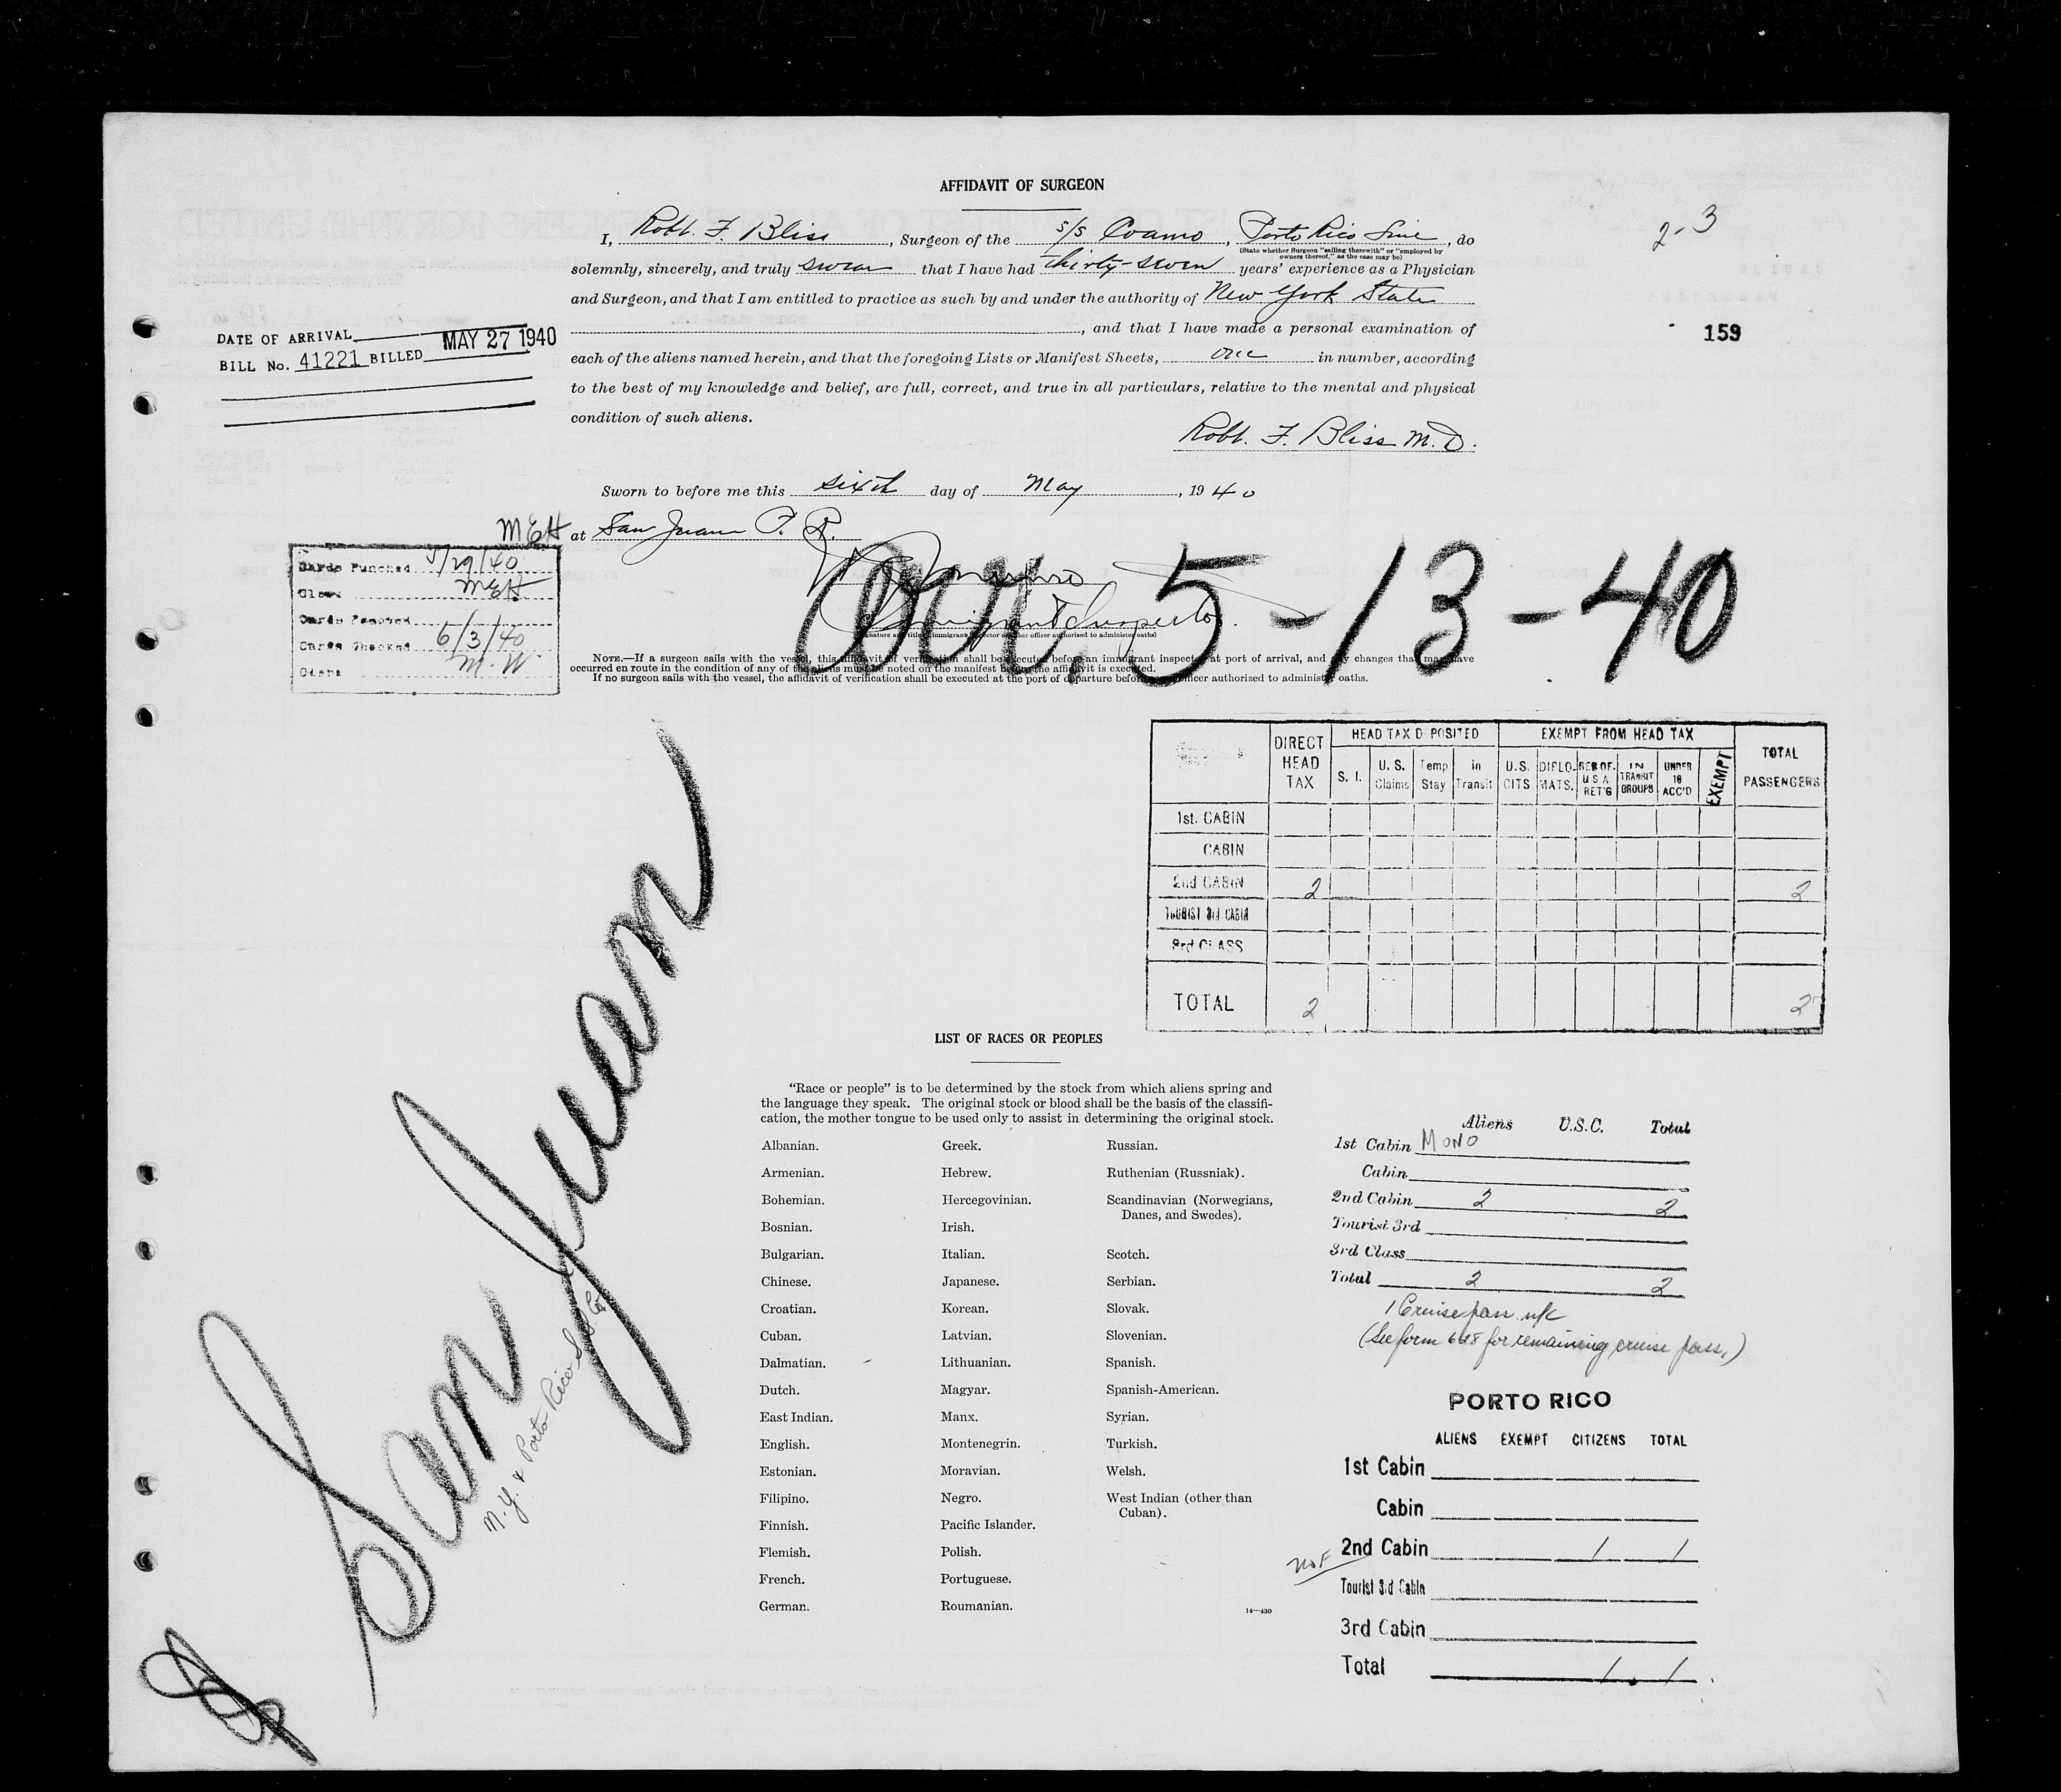 AFFIDAVIT OF SURGEON
2-3
I, Robt. F. Bliss, Surgeon of the s/s Coamo, Porto Rico Line, do
(State whether Surgeon "sailing therewith" or "employed by owners thereof," as the case may be)
solemnly, sincerely, and truly swear that I have had thirty-seven years' experience as a Physician
and Surgeon, and that I am entitled to practice as such by and under the authority of New York State
, and that I have made a personal examination of
159
each of the aliens named herein, and that the foregoing Lists or Manifest Sheets, one in number, according
to the best of my knowledge and belief, are full, correct, and true in all particulars, relative to the mental and physical
condition of such aliens.
DATE OF ARRIVAL
BILL No. 41221 BILLED MAY 27 1940
Robt. F. Bliss M.D.
Sworn to before me this sixth day of May, 1940
at San Juan P. R.
MEH
Cards Punched 5/29/40
MEH
Cards Checked 6/3/40
M. W.
Immigrant Inspector.
arr. 5-13-40
NOTE.—If a surgeon sails with the vessel, this affidavit of verification shall be executed before an immigrant inspector at port of arrival, and any changes that may have
occurred en route in the condition of any of the aliens must be noted on the manifest before the affidavit is executed.
If no surgeon sails with the vessel, the affidavit of verification shall be executed at the port of departure before officer authorized to administer oaths.
DIRECT HEAD TAX
HEAD TAX D POSITED
EXEMPT FROM HEAD TAX
TOTAL PASSENGERS
S. I.
U. S. Claims
Temp Stay
in Transit
U.S. CITS
DIPLO-MATS.
RES OF. U S A RET'G
IN TRANSIT GROUPS
UNDER 16 ACC'D
EXEMPT
1st. CABIN
CABIN
2nd CABIN 2 2
TOURIST 3rd CABIN
3rd CLASS
TOTAL 2 2
San Juan
N. Y. & Porto Rico S. S. Co.
LIST OF RACES OR PEOPLES
"Race or people" is to be determined by the stock from which aliens spring and
the language they speak. The original stock or blood shall be the basis of the classifi-
cation, the mother tongue to be used only to assist in determining the original stock.
Albanian.
Armenian.
Bohemian.
Bosnian.
Bulgarian.
Chinese.
Croatian.
Cuban.
Dalmatian.
Dutch.
East Indian.
English.
Estonian.
Filipino.
Finnish.
Flemish.
French.
German.
Greek.
Hebrew.
Hercegovinian.
Irish.
Italian.
Japanese.
Korean.
Latvian.
Lithuanian.
Magyar.
Manx.
Montenegrin.
Moravian.
Negro.
Pacific Islander.
Polish.
Portuguese.
Roumanian.
Russian.
Ruthenian (Russniak).
Scandinavian (Norwegians,
Danes, and Swedes).
Scotch.
Serbian.
Slovak.
Slovenian.
Spanish.
Spanish-American.
Syrian.
Turkish.
Welsh.
West Indian (other than
Cuban).
14—430
Aliens U.S.C. Total
1st Cabin MONO
Cabin
2nd Cabin 2 2
Tourist 3rd
3rd Class
Total 2 2
1 Cruise pass
(See form 618 for remaining cruise pass.)
PORTO RICO
ALIENS EXEMPT CITIZENS TOTAL
1st Cabin
Cabin
2nd Cabin 1 1
Tourist 3rd Cabin
3rd Cabin
Total 1 1